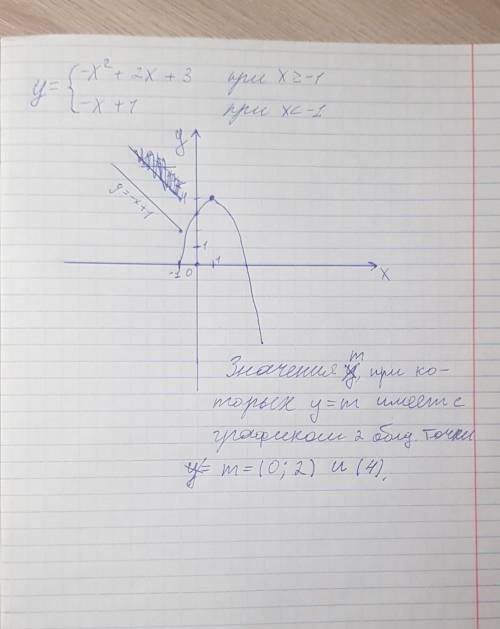 y = { -x² + 2x + 3 при x ≥ -1
-x + 1 при x < -1
y
y=-x+1
4
1
-1 0 1 x
Значения m, при ко-
торых y=m имеет с
графиком 2 общ. точки
m = (0; 2) и (4).